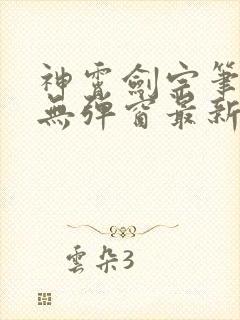 神霄劍宗筆
無彈窗最新
雲朵3